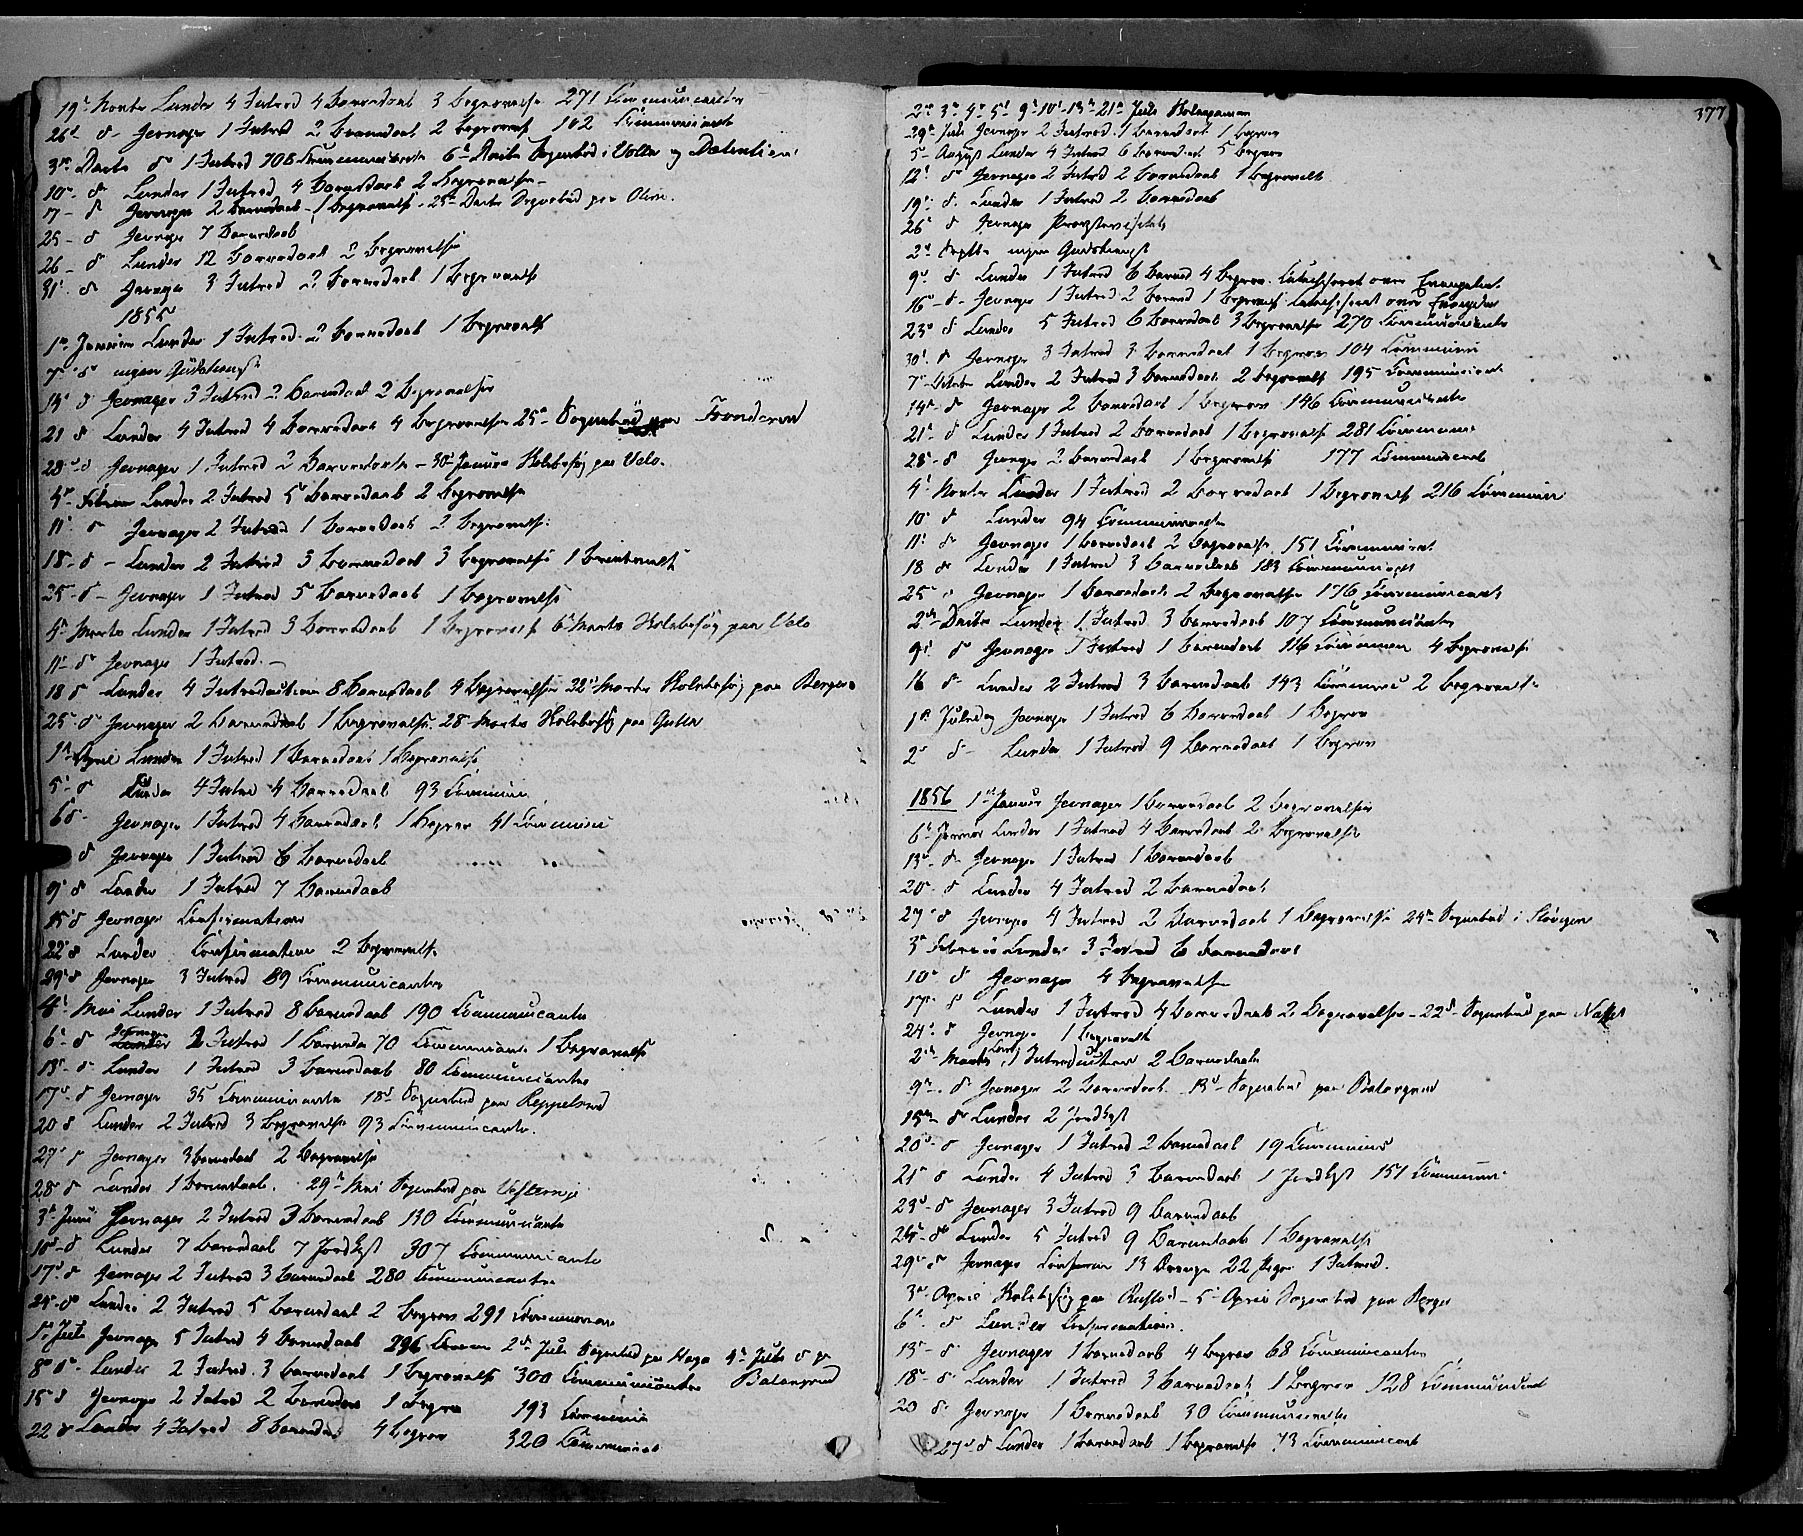 19de Novbr Lunder 4 Introd 4 Barnedaab 3 Begravelse 271 Communicanter
26d d Jevnager 1 Introd 2 Barnedaab 2 Begravels 102 Communicant
3de Decbr d 1 Introd 108 Communicanter 6te Decbr Sognebud i Volla og
10de d Lunder 1 Introd 4 Barnedaab 2 Begravelse
17 d Jevnager 2 Barnedaab 1 Begravels 23de Decbr Sognebud paa Olien.
25 d Jevnager 7 Barnedaab
26 d Lunder 12 Barnedaab 2 Begravelse
31 d Jevnager 3 Introd 2 Barnedaab 1 Begravelse
1855
1de Januar Lunder 1 Introd 2 Barnedaab 1 Begravelse
7de d ingen Gudstjeneste
14 d Jevnager 3 Introd 2 Barnedaab 2 Begravelser
21 d Lunder 4 Introd 4 Barnedaab 4 Begravelser 25de Sognebud paa
28 d Jevnager 1 Introd 2 Barnedaab 30 Januar Skolebesøg paa Velo.
4de Februar Lunder 2 Introd 5 Barnedaab 2 Begravelse
11 d Jevnager 2 Introd 1 Barnedaab 2 Begravelse
18 d Lunder 2 Introd 3 Barnedaab 3 Begravelse 1
25 d Jevnager 1 Introd 5 Barnedaab 1 Begravelse
4de Marts Lunder 1 Introd 3 Barnedaab 1 Begravelse 6te Marts Skolebesøg paa Velo
11 d Jevnager 1 Introd.
18 d Lunder 4 Introduction 8 Barnedaab 4 Begravelser 22de Marts Skolebesøg paa Berger
25 d Jevnager 2 Barnedaab 1 Begravelse. 28 Marts Skolebesøg paa
1de April Lunder 1 Introd 1 Barnedaab 1 Begravelse
5 d Lunder 4 Introd 4 Barnedaab 93 Commun
6 d Jevnager 1 Introd 4 Barnedaab 1 Begrav 41 Communi
d Jevnager 1 Introd 6 Barnedaab
9 d Lunder 1 Introd 7 Barnedaab
15 d Jevnager Confirmation
22 d Lunder Confirmation 2 Begravelse
29 d Jevnager 3 Introd 89 Communicanter
4 Mai Lunder 1 Introd 8 Barnedaab 190 Communicanter
6 d Jevnager 2 Introd 1 Barneda 70 Communicant 1 Begravelse
13 d Lunder 1 Introd 3 Barnedaab 80 Communicanter
17 d Jevnager 35 Communicanter 18d Sognebud paa
20 d Lunder 2 Introd 3 Begravelse 93 Communicanter.
27 d Jevnager 3 Barnedaab 2 Begravelse
28 d Lunder 1 Barnedaab. 29de Mai Sognebud paa
3de Juni Jevnager 2 Introd 3 Barnedaab 130 Communicanter
10 d Lunder 7 Barnedaab 7 Jordfæst 307 Communicanter
17 d Jevnager 2 Introd 3 Barnedaab 280 Communicanter
24 d Lunder 2 Introd 5 Barnedaab 2 Begrav 291 Communican
1de Juli Jevnager 5 Introd 4 Barnedaab 296 Commun 2de Juli Sognebud paa Haga 4de Juli d paa
8 d Lunder 2 Introd 3 Barnedaab 1 Begravelse 300 Communicanter
15 d Jevnager 2 Introd 2 Barnedaab 1 Begrav 193 Communic
22 d Lunder 4 Introd 8 Barnedaab 4 Begrav 320 Communicant
377
2de 3de 4de 5te 9de 10de 13de 21de Juli
29de Juli Jevnager 2 Introd. 1 Barnedaab 1 Begrav
5 August Lunder 4 Introd 6 Barnedaab 5 Begrav
12 d Jevnager 2 Introd 2 Barnedaab 1 Begravelse
19 d Lunder 1 Introd 2 Barnedaab
26 d Jevnager Provstevisitats
2d Septbr ingen Gudstjeneste
9 d Lunder 1 Introd 6 Barned 4 Begrav. Catechiseret over Evangeliet
16 d Jevnager 1 Introd 2 Barned 1 Begravels Catechiseret over Evangeliet
23 d Lunder 5 Introd 6 Barnedaab 3 Begravelse 270 Communicanter
30 d Jevnager 3 Introd 3 Barnedaab 1 Begrav 104 Communi
7 Octobr Lunder 2 Introd 3 Barnedaab 2 Begravelse 195 Communicant
14 d Jevnager 2 Barnedaab 1 Begrav 146 Communicanter
21 d Lunder 1 Introd 2 Barnedaab 1 Begravelse 281 Commun
28 d Jevnager 2 Barnedaab 1 Begravelse 177 Communicant
4 Novbr Lunder 1 Introd 2 Barnedaab 1 Begravelse 216 Commun
10 d Lunder 94 Communicanter
11 d Jevnager 1 Barnedaab 2 Begravelse 151 Communicant
18 d Lunder 1 Introd 3 Barnedaab 183 Communicant
25 d Jevnager 1 Barnedaab 2 Begravelse 176 Communicant
2de Decbr Lunder 1 Introd 3 Barnedaab 107 Communicanter
9 d Jevnager 1 Introd 1 Barnedaab 116 Commun 4 Begravelse
16 d Lunder 2 Introd 3 Barnedaab 143 Communi 2 Begravelse
1de Juledag Jevnager 1 Introd 6 Barnedaab 1 Begrav
2 d Lunder 1 Introd 9 Barnedaab 1 Begrav
1856 1de Januar Jevnager 1 Barnedaab 2 Begravelser
6te Januar Lunder 1 Introd 4 Barnedaab 2 Begravelse
13 d Jevnager 1 Introd 1 Barnedaab
20 d Lunder 4 Introd 2 Barnedaab
27 d Jevnager 4 Introd 2 Barnedaab 1 Begravelse 24de Sognebud i
3de Februar Lunder 3 Introd 6 Barnedaab
10 d Jevnager 4 Begravelse
17 d Lunder 1 Introd 4 Barnedaab 2 Begravelse 22d Sognebud paa
24 d Jevnager 1 Begravelse
2de Marts Lund 1 Introduction 2 Barnedaab
9 d Jevnager 2 Barnedaab 13d Sognebud paa
15de d Lunder 2 Jordfæst
20 d Jevnager 1 Introd 2 Barnedaab 19 Communic
21 d Lunder 4 Introd 3 Barnedaab 1 Jordfæst 151 Communi
23 d Jevnager 3 Introd 9 Barnedaab
24 d Lunder 5 Introd 9 Barnedaab 1 Begravelse
29 d Jevnager Confirm 13 Drenge 22 Piger 1 Introd.
3de April Skolebesøg paa 5 April Sognebud paa Berger
6 d Lunder Confirmation.
13 d Jevnager 1 Barnedaab 4 Begrav 68 Communicanter
18 d Lunder 1 Introd 3 Barnedaab 1 Begrav 128 Communicant
20 d Jevnager 1 Barnedaab 30 Communicanter
27 d Lunder 1 Barnedaab 1 Begravelse 73 Communicant